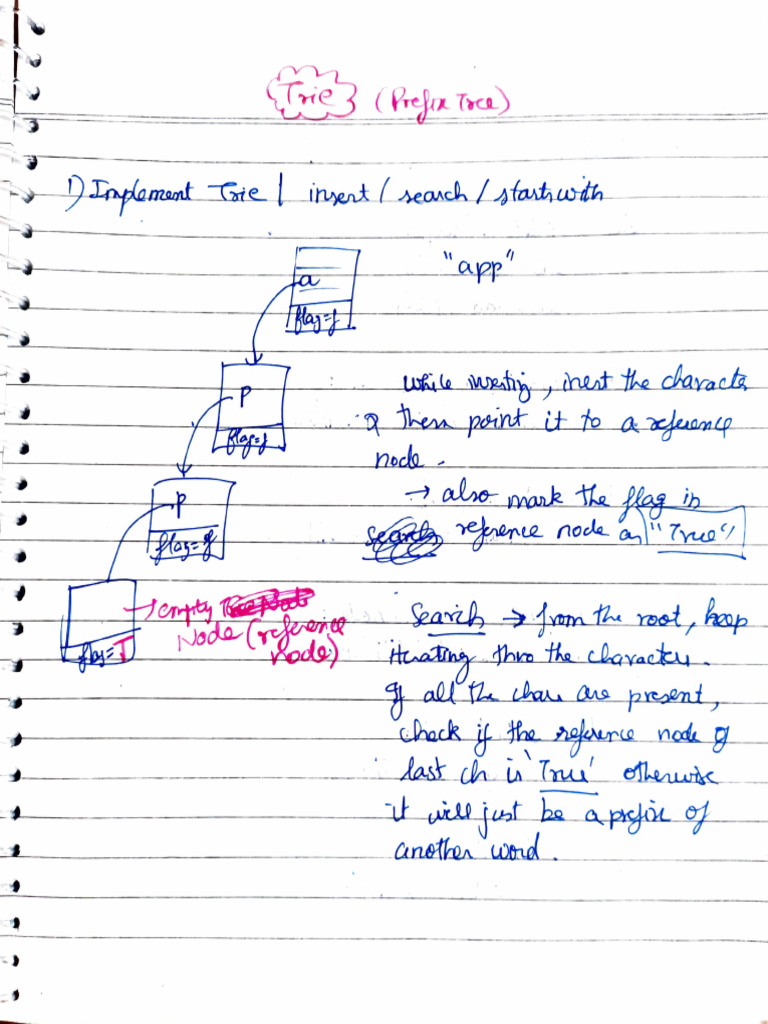 Trie (Prefix Tree)
1) Implement Trie | insert / search / startswith
"app"
a
flag=f
p
flag=f
p
flag=f
flag=T
→ empty
Node (reference
node)
while inserting, inert the character
& then point it to a reference
node.
→ also mark the flag in
reference node as "True"
Search → from the root, keep
iterating thro the characters.
If all the chars are present,
check if the reference node of
last ch is 'True' otherwise
it will just be a prefix of
another word.